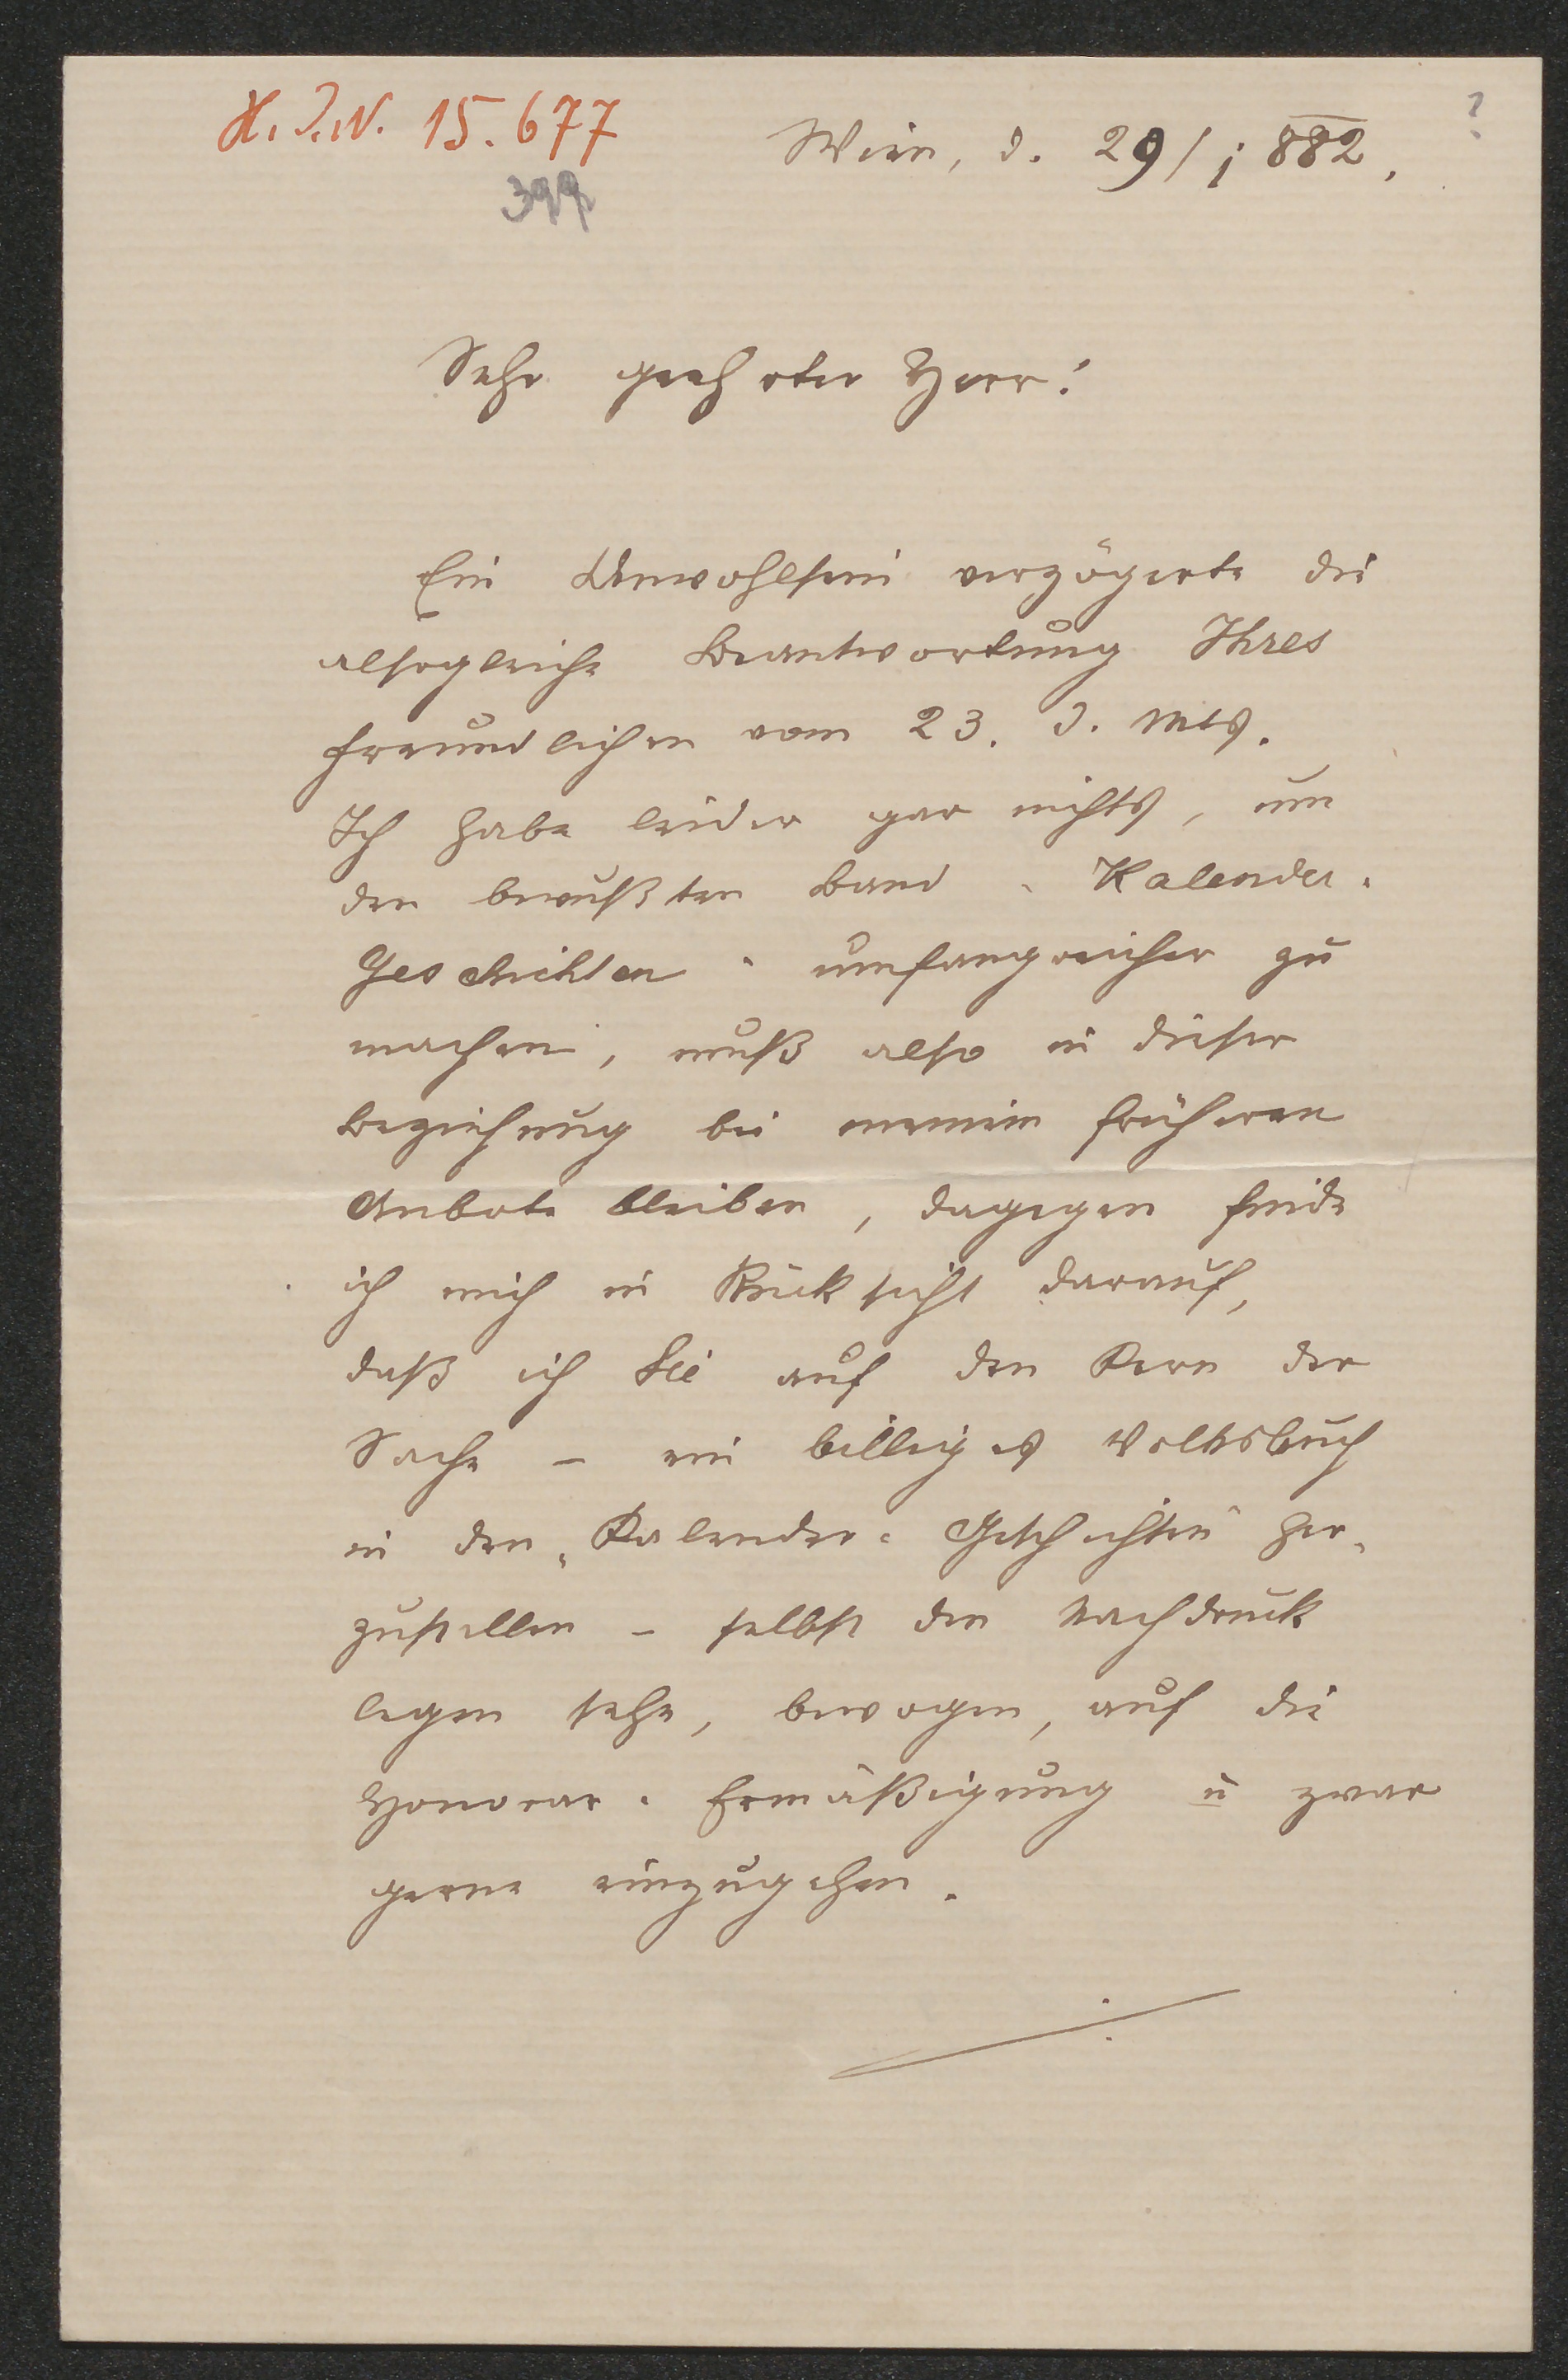 H. I. N. 15.677
399
?
Wien, d. 29/1 882.
Sehr geehrter Herr!
Ein Unwohlsein verzögerte die
alsogleiche Beantwortung Ihres
freundlichen vom 23. d. Mts.
Ich habe leider gar nichts, um
den bewußten Band „Kalender-
Geschichten“ umfangreicher zu
machen, muß also in dieser
Beziehung bei meinem früheren
Anbote bleiben, dagegen finde
ich mich in Rücksicht darauf,
daß ich Sie auf den Kern der
Sache – ein billiges Volksbuch
in den „Kalender-Geschichten“ her-
zustellen – selbst den Nachdruck
legen sehe, bewogen, auf die
Honorar-Ermäßigung u zwar
gerne einzugehen.